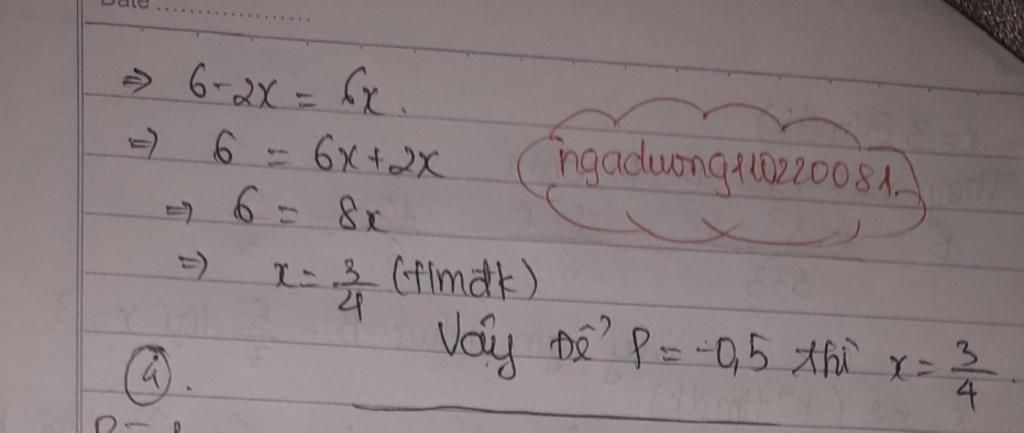 Date ....................
⇒ 6-2x = 6x.
⇒ 6 = 6x+2x
ngaduong110220081_
⇒ 6 = 8x
⇒ x = 3/4 (t/mđk)
Vậy Để P = -0,5 thì x = 3/4.